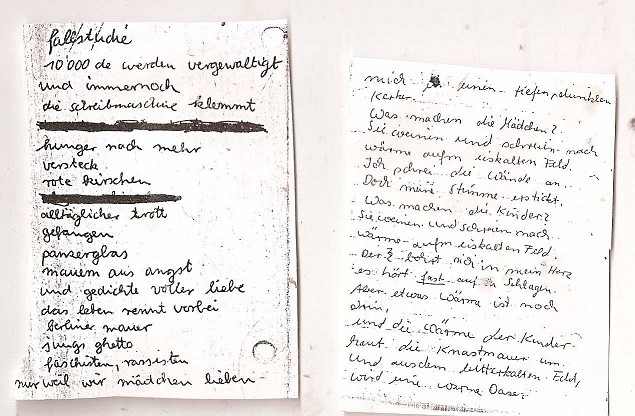 fallstudie
10'000 de werden vergewaltigt
und immernoch
die schreibmaschine klemmt
hunger nach mehr
versteck
rote kirschen
alltäglicher trott
gefangen
panzerglas
mauern aus angst
und gedichte voller liebe
das leben rennt vorbei
berliner mauer
jungs ghetto
faschisten, rassisten
nur weil wir mädchen lieben
mich in einen tiefen dunklen
Kerker
Was machen die Mädchen?
Sie weinen und schreien nach
wärme aufm eiskalten Feld.
Ich schrei die Wände an.
Doch meine Stimme erstickt.
Was machen die Kinder?
Sie weinen und schreien nach
wärme aufm eiskalten Feld.
Der ? bohrt sich in mein Herz
es hört fast auf zu Schlagen.
Aber etwas Wärme ist noch
drin,
und die Wärme der Kinder
haut die Knastmauer um,
Und aus dem bitterkalten Feld,
wird eine warme Oase!